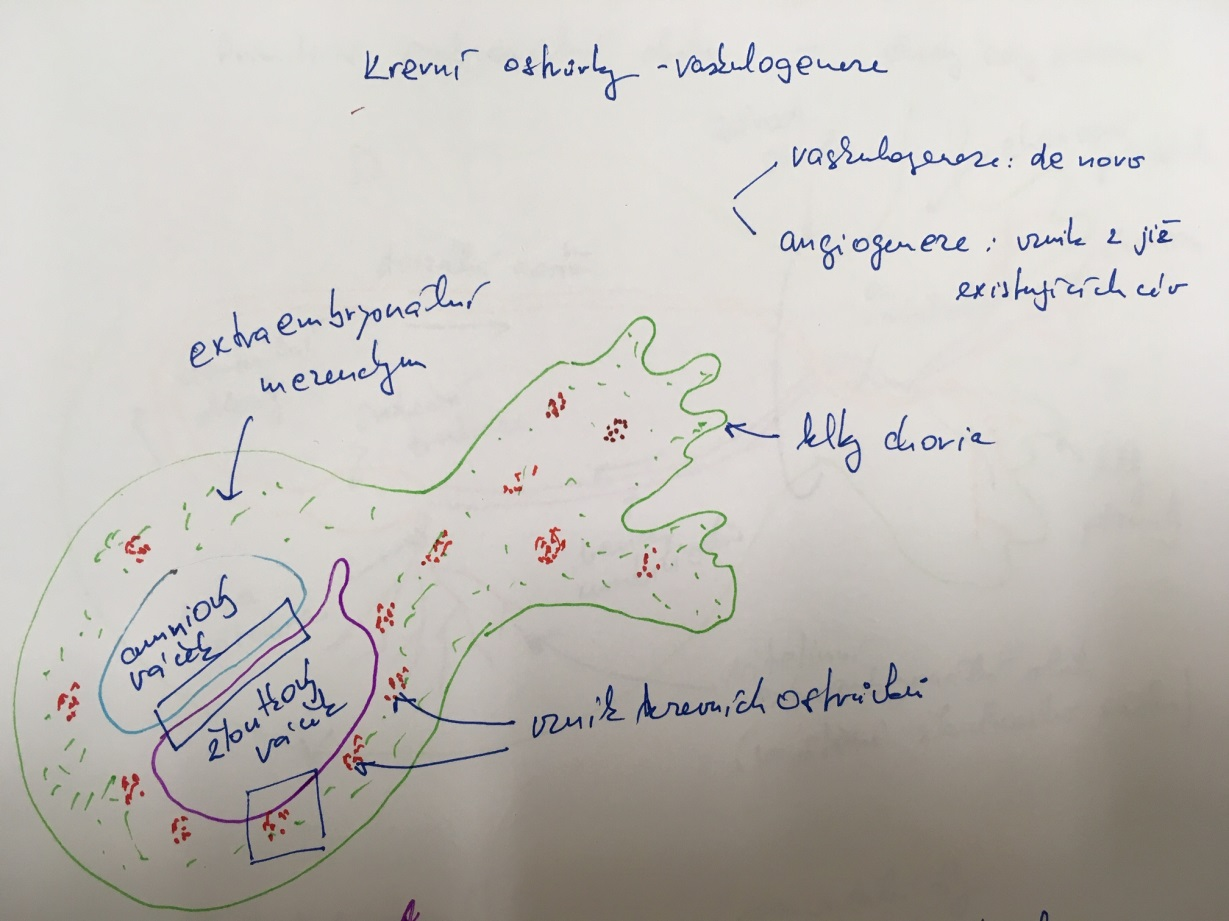 Krevní ostrůvky - vaskulogeneze
vaskulogeneze: de novo
angiogeneze: vznik z již
existujících cév
extraembryonální
mezenchym
klky choria
amniový
váček
žloutkový
váček
vznik krevních ostrůvků